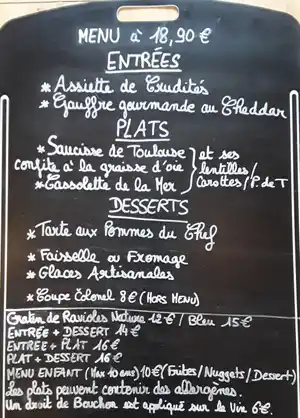 MENU à 18,90 €
ENTRÉES
* Assiette de Crudités
* Gauffre gourmande au Cheddar
PLATS
* Saucisse de Toulouse } et ses
confite à la graisse d'oie } lentilles /
* Cassolette de la Mer } Carottes / P. de T
DESSERTS
* Tarte aux Pommes du Chef
* Faisselle ou Fromage
* Glaces Artisanales
* Coupe Colonel 8 € (HORS MENU)
Gratin de Ravioles Nature 12 € / Bleu 15 €
ENTRÉE + DESSERT 14 €
ENTRÉE + PLAT 16 €
PLAT + DESSERT 16 €
MENU ENFANT (Max 10 ans) 10 € (Frites / Nuggets / Dessert)
Les plats peuvent contenir des allergènes.
Un droit de Bouchon est appliqué sur le Vin 6 €.